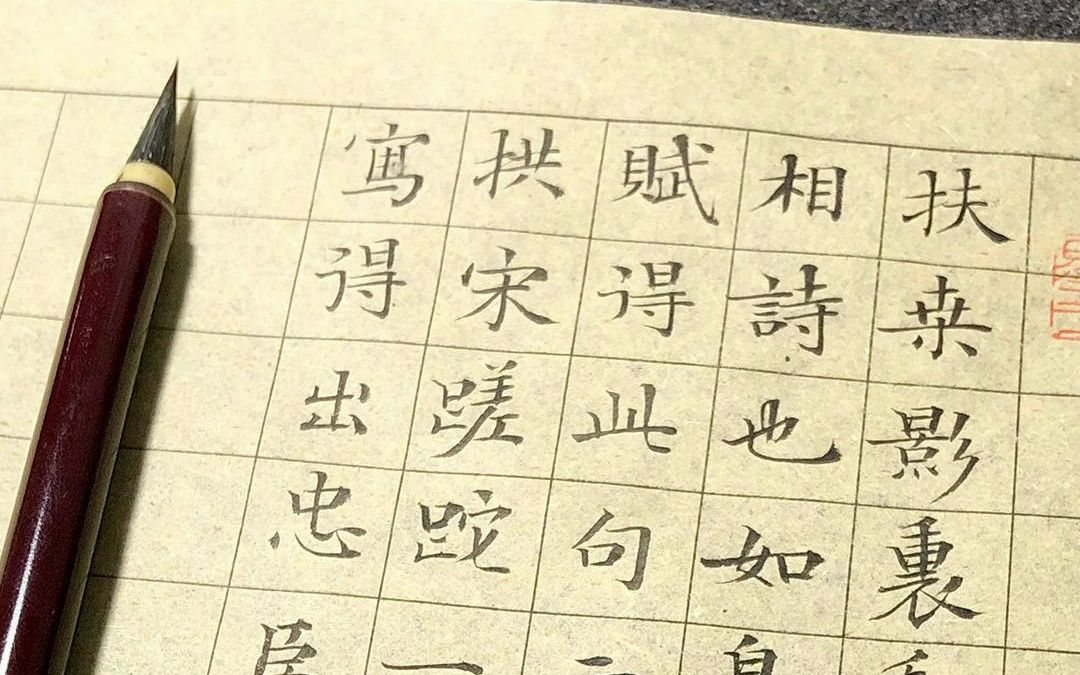 扶桒影裏
相詩也如
賦得此句
拱宋蹉跎一
寫得出忠臣